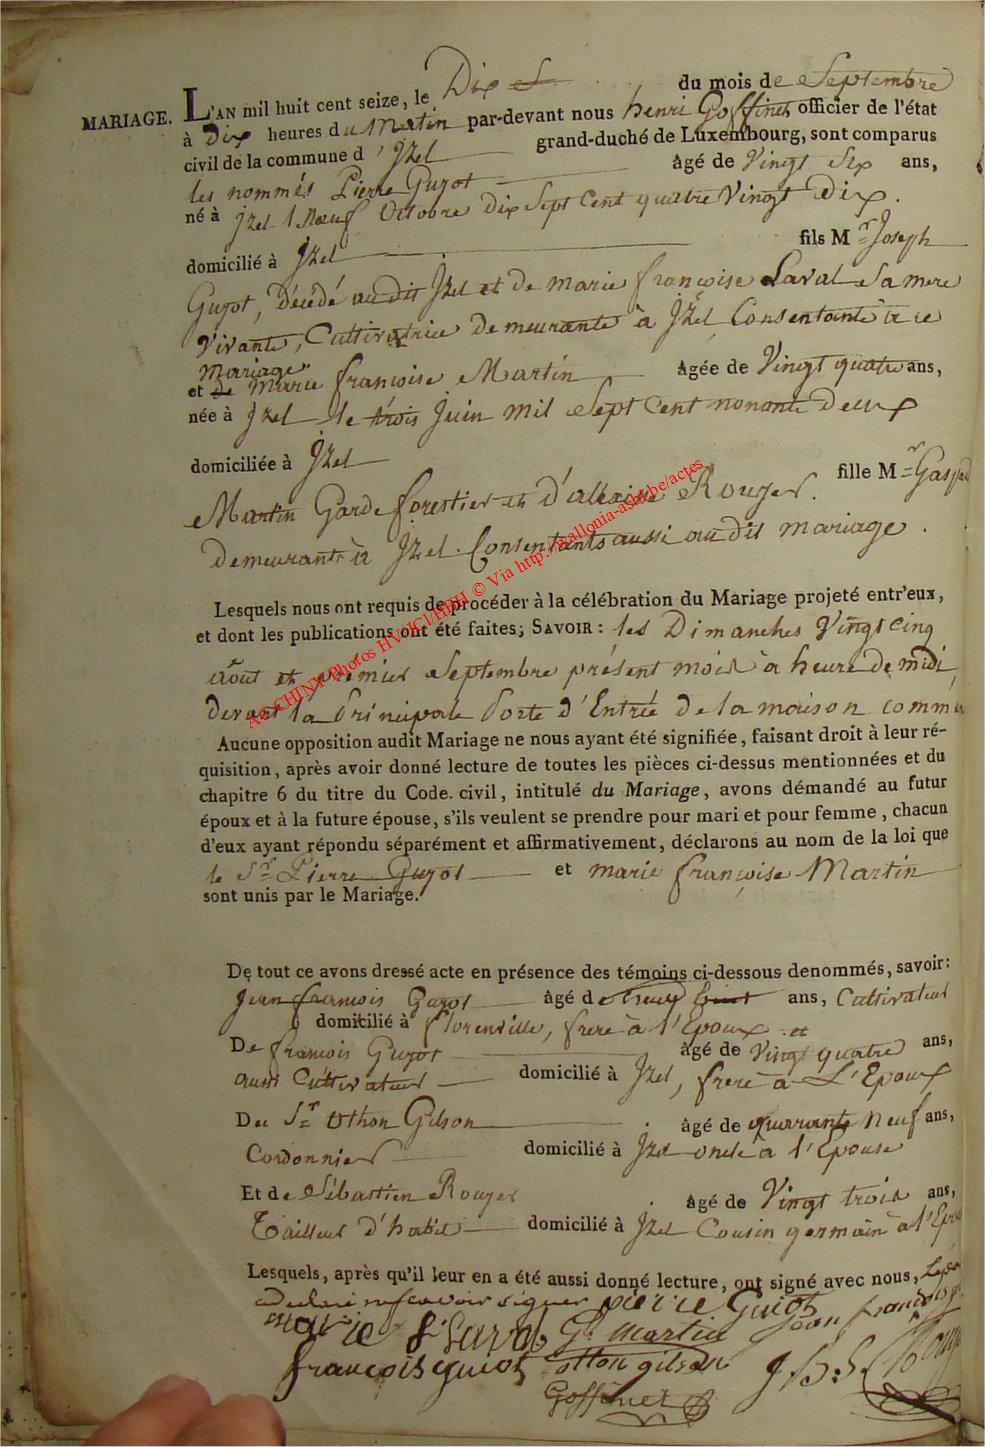 MARIAGE. L'AN mil huit cent seize, le Dix du mois de Septembre
à Dix heures du Matin par-devant nous henri Goffinet officier de l'état
civil de la commune d' Jzel grand-duché de Luxembourg, sont comparus
les nommés Pierre Guyot âgé de Vingt Six ans,
né à Jzel le Neuf Octobre Dix Sept Cent quatre Vingt Dix.
domicilié à Jzel fils Mr Joseph
Guyot, Décédé audit Jzel et de marie françoise Laval Sa mere
Vivante, Cultivatrice Demeurante à Jzel Consentante à ce
Mariage
et de Marie françoise Martin Agée de Vingt quatre ans,
née à Jzel le trois Juin mil Sept Cent nonante Deux
domiciliée à Jzel fille Mr Gaspard
Martin Garde forestier et d'allaire Rouyer.
Demeurants à Jzel. Consentants aussi au dit mariage.
Lesquels nous ont requis de procéder à la célébration du Mariage projeté entr'eux,
et dont les publications ont été faites; SAVOIR: les Dimanches Vingt Cinq
Août et premier Septembre présent mois à heure De midi,
Devant la Principale Porte d'Entrée De la maison
Aucune opposition audit Mariage ne nous ayant été signifiée, faisant droit à leur ré-
quisition, après avoir donné lecture de toutes les pièces ci-dessus mentionnées et du
chapitre 6 du titre du Code. civil, intitulé du Mariage, avons démandé au futur
époux et à la future épouse, s'ils veulent se prendre pour mari et pour femme, chacun
d'eux ayant répondu séparément et affirmativement, déclarons au nom de la loi que
le Sr Pierre Guyot et marie françoise Martin
sont unis par le Mariage.
De tout ce avons dressé acte en présence des témoins ci-dessous denommés, savoir:
Jean françois Guyot âgé de ans, Cultivateur
domicilié à florenville, frere à l'Epoux et
De françois Guyot âgé de Vingt quatre ans,
aussi Cultivateur domicilié à Jzel, frere à L'Epoux
Du Sr Othon Gilson âgé de quarante Neuf ans,
Cordonnier domicilié à Jzel oncle à l'Epouse
Et de Sébastien Rouyer âgé de Vingt trois ans,
Tailleur d'habit domicilié à Jzel Cousin germain à l'Epou
Lesquels, après qu'il leur en a été aussi donné lecture, ont signé avec nous,
a declaré ne scavoir signer pierre Guiot jean françois
marie f Laval G. Martin
françois guiot otton gilson J. B. S. Rouy
Goffinet
Ae CHINY Photos HVJICI/HBH © Via http://wallonia-asbl.be/actes